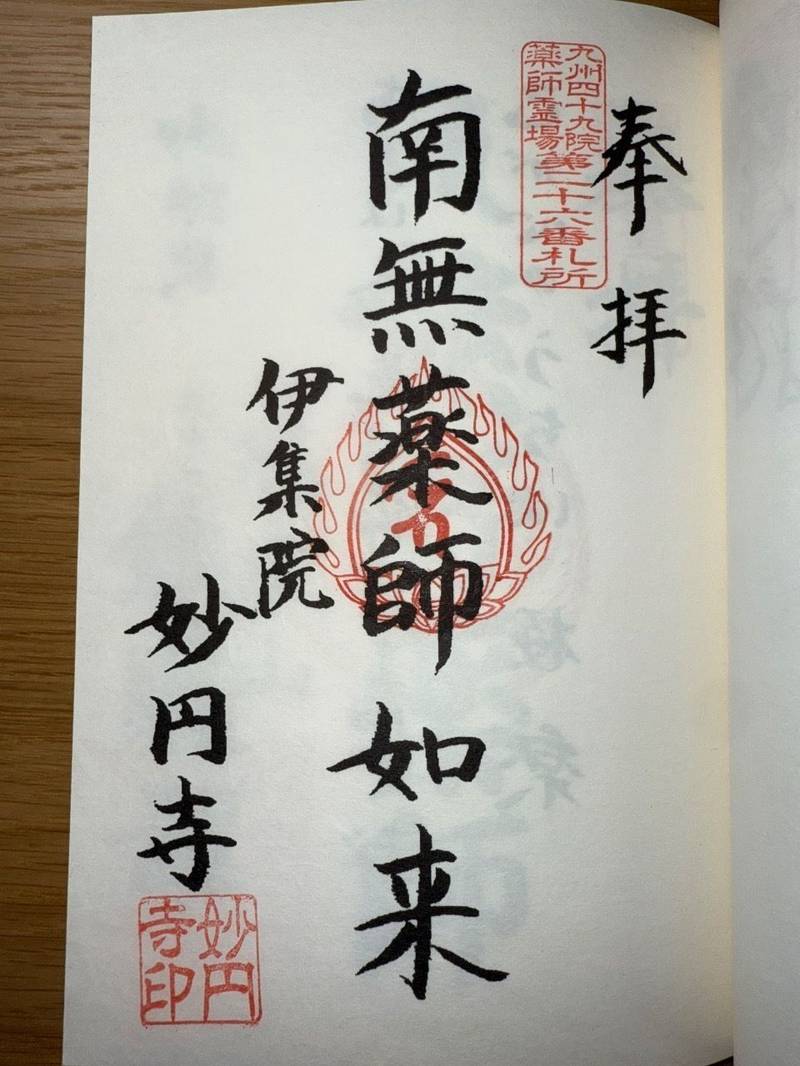 奉拝
九州四十九院
薬師霊場第二十六番札所
南無薬師如来
伊集院
妙円寺
妙円
寺印